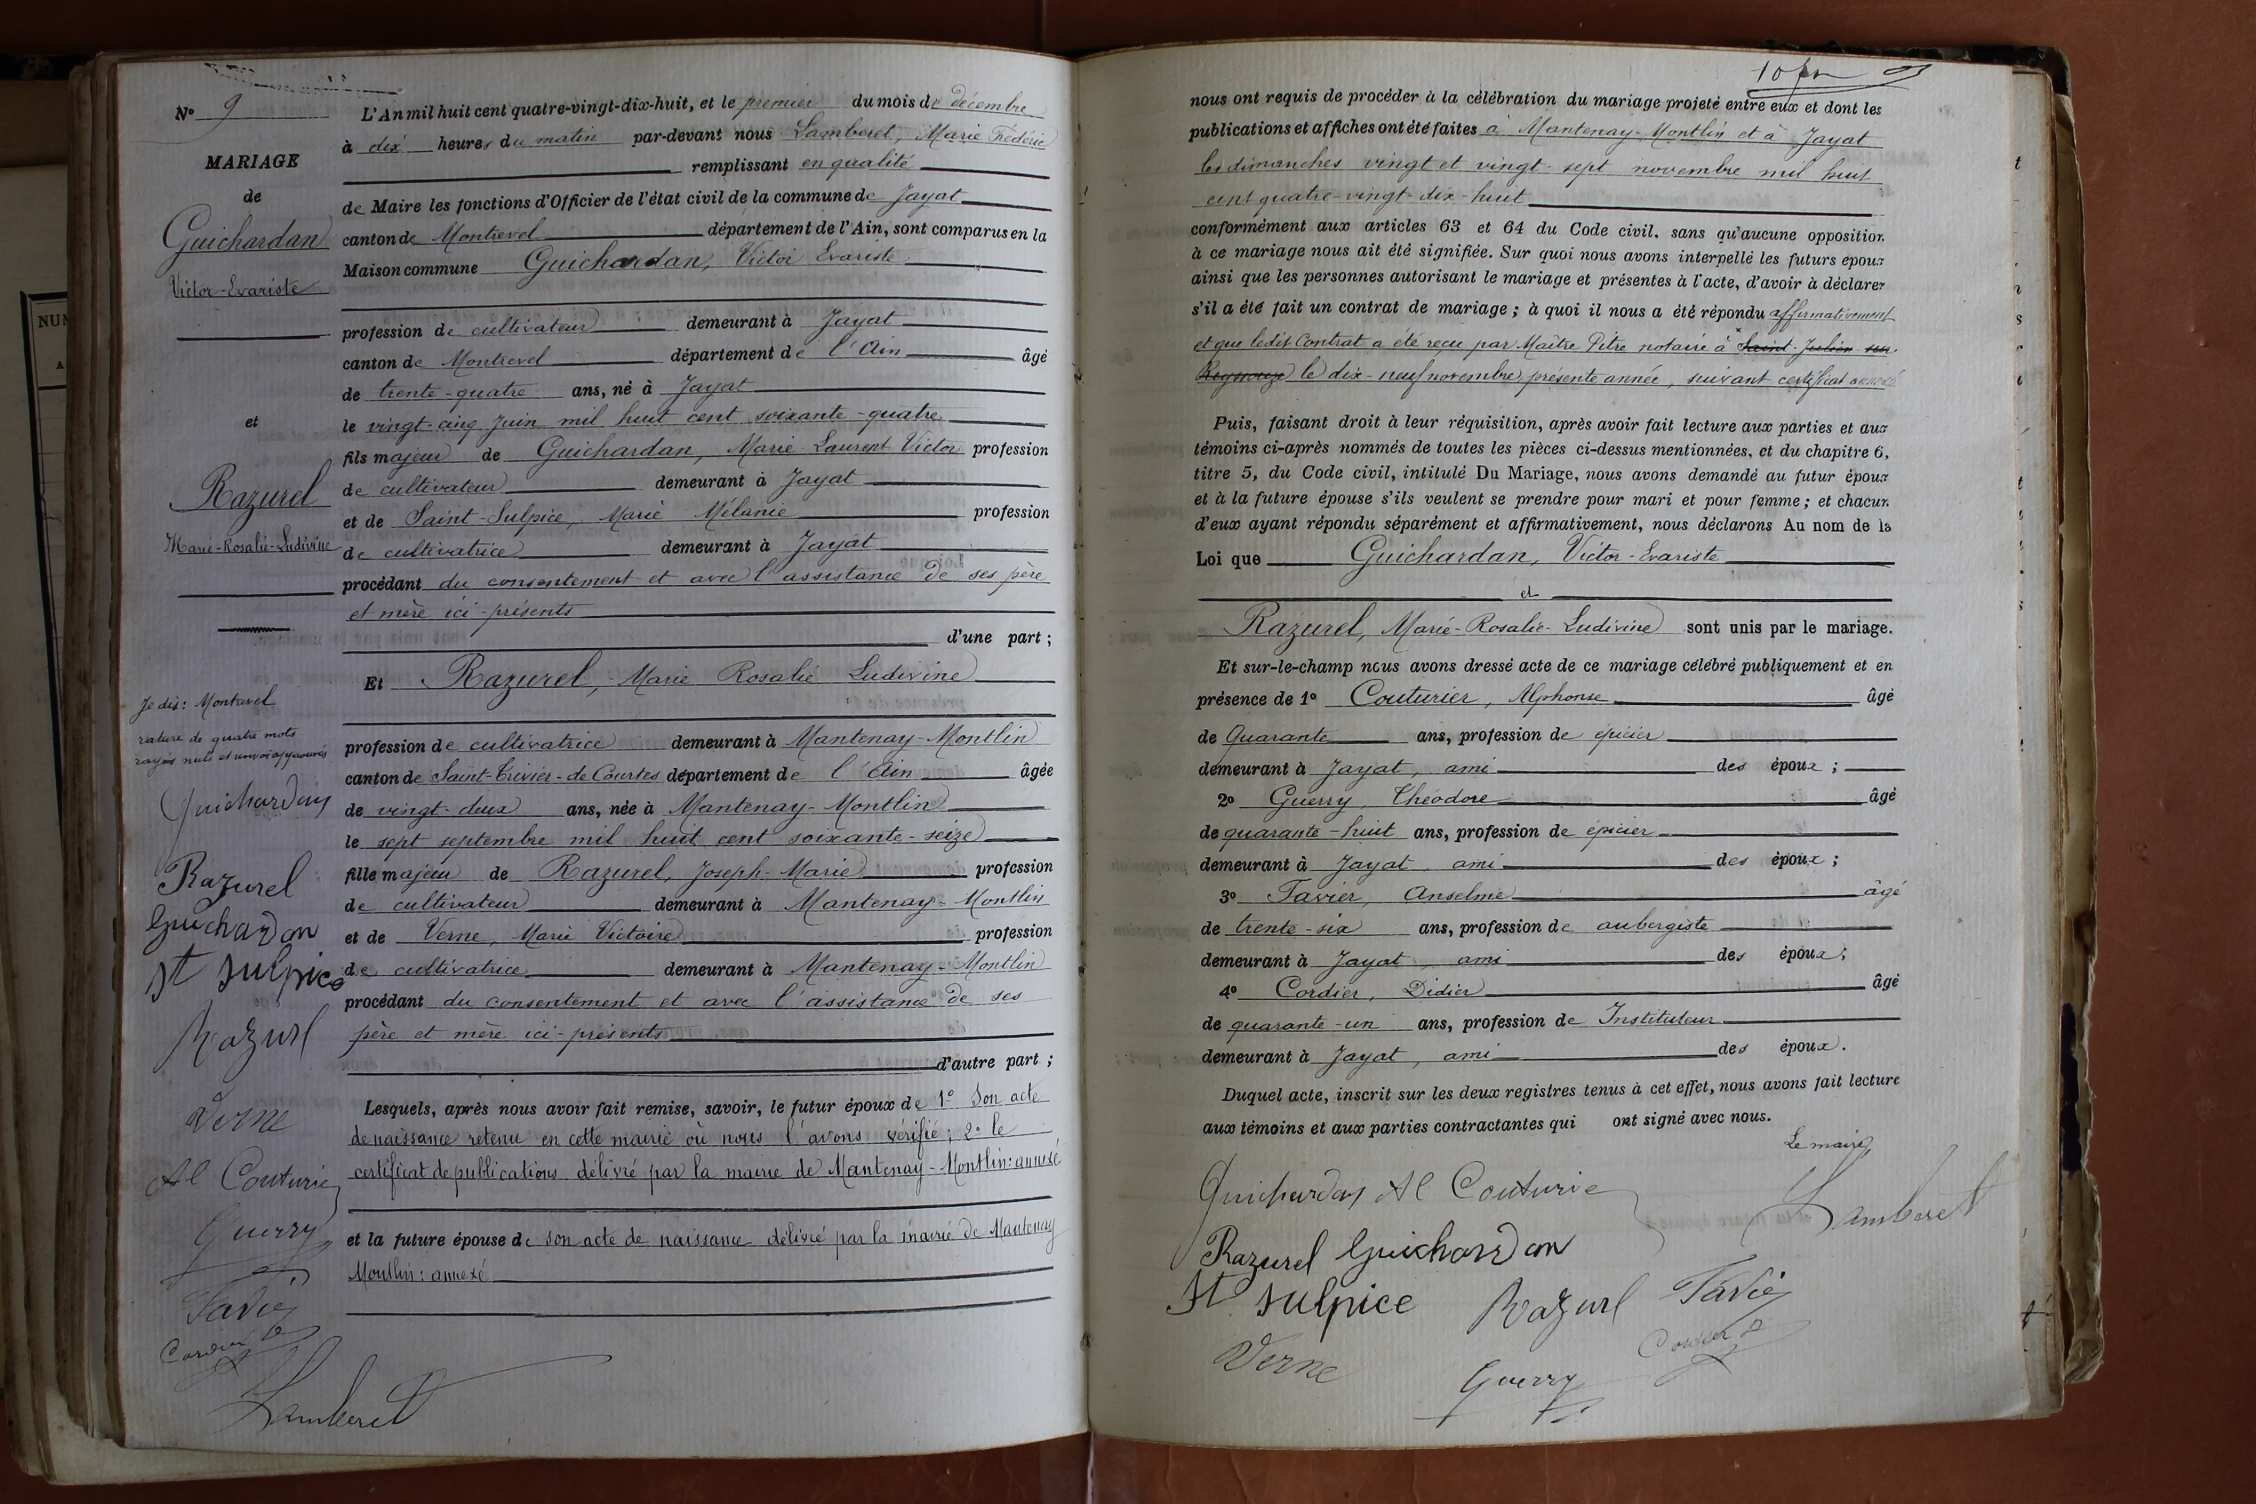 N° 9
MARIAGE
de
Guichardan
Victor-Evariste
et
Razurel
Marie-Rosalie-Ludivine
Je dis: Montrevel
rature de quatre mots
rayés nuls et renvoi approuvés
Guichardan
Razurel
Guichardon
St Sulpice
Razurel
Verne
Al Couturier
Guerry
Favier
Cordier
Lamberet
L'An mil huit cent quatre-vingt-dix-huit, et le premier du mois de décembre
à dix heures du matin par-devant nous Lamberet, Marie Frédéric
remplissant en qualité
de Maire les fonctions d'Officier de l'état civil de la commune de Jayat
canton de Montrevel département de l'Ain, sont comparus en la
Maison commune Guichardan, Victor Evariste
profession de cultivateur demeurant à Jayat
canton de Montrevel département de l'Ain âgé
de trente-quatre ans, né à Jayat
le vingt-cinq Juin mil huit cent soixante-quatre
fils majeur de Guichardan, Marie Laurent Victor profession
de cultivateur demeurant à Jayat
et de Saint-Sulpice, Marie Mélanie profession
de cultivatrice demeurant à Jayat
procédant du consentement et avec l'assistance de ses père
et mère ici-présents
d'une part ;
Et Razurel, Marie Rosalie Ludivine
profession de cultivatrice demeurant à Mantenay-Montlin
canton de Saint-Trivier-de Courtes département de l'Ain âgée
de vingt-deux ans, née à Mantenay-Montlin
le sept septembre mil huit cent soixante-seize
fille majeur de Razurel, Joseph-Marie profession
de cultivateur demeurant à Mantenay-Montlin
et de Verne, Marie Victoire profession
de cultivatrice demeurant à Mantenay-Montlin
procédant du consentement et avec l'assistance de ses
père et mère ici-présents
d'autre part ;
Lesquels, après nous avoir fait remise, savoir, le futur époux de 1° Son acte
de naissance retenu en cette mairie où nous l'avons vérifié ; 2° le
certificat de publications délivré par la mairie de Mantenay-Montlin: annexé
et la future épouse de son acte de naissance délivré par la mairie de Mantenay
Montlin: annexé
nous ont requis de procéder à la célébration du mariage projeté entre eux et dont les
publications et affiches ont été faites à Mantenay-Montlin et à Jayat
les dimanches vingt et vingt-sept novembre mil huit
cent quatre-vingt-dix-huit
conformément aux articles 63 et 64 du Code civil, sans qu'aucune opposition
à ce mariage nous ait été signifiée. Sur quoi nous avons interpellé les futurs époux
ainsi que les personnes autorisant le mariage et présentes à l'acte, d'avoir à déclarer
s'il a été fait un contrat de mariage ; à quoi il nous a été répondu affirmativement
et que ledit Contrat a été reçu par Maître Pitre notaire à Saint-Julien-sur-
Reyssouze le dix-neuf novembre présente année, suivant certificat annexé
Puis, faisant droit à leur réquisition, après avoir fait lecture aux parties et aux
témoins ci-après nommés de toutes les pièces ci-dessus mentionnées, et du chapitre 6,
titre 5, du Code civil, intitulé Du Mariage, nous avons demandé au futur époux
et à la future épouse s'ils veulent se prendre pour mari et pour femme ; et chacun
d'eux ayant répondu séparément et affirmativement, nous déclarons Au nom de la
Loi que Guichardan, Victor-Evariste
et
Razurel, Marie-Rosalie-Ludivine sont unis par le mariage.
Et sur-le-champ nous avons dressé acte de ce mariage célébré publiquement et en
présence de 1° Couturier, Alphonse âgé
de Quarante ans, profession de épicier
demeurant à Jayat, ami des époux ;
2° Guerry, Théodore âgé
de quarante-huit ans, profession de épicier
demeurant à Jayat ami des époux ;
3° Favier, Anselme âgé
de trente-six ans, profession de aubergiste
demeurant à Jayat, ami des époux ;
4° Cordier, Didier âgé
de quarante-un ans, profession de Instituteur
demeurant à Jayat, ami des époux.
Duquel acte, inscrit sur les deux registres tenus à cet effet, nous avons fait lecture
aux témoins et aux parties contractantes qui ont signé avec nous.
Le maire,
Guichardan Al Couturier Lamberet
Razurel Guichardon
St Sulpice Razurel Favier
Verne Guerry Cordier